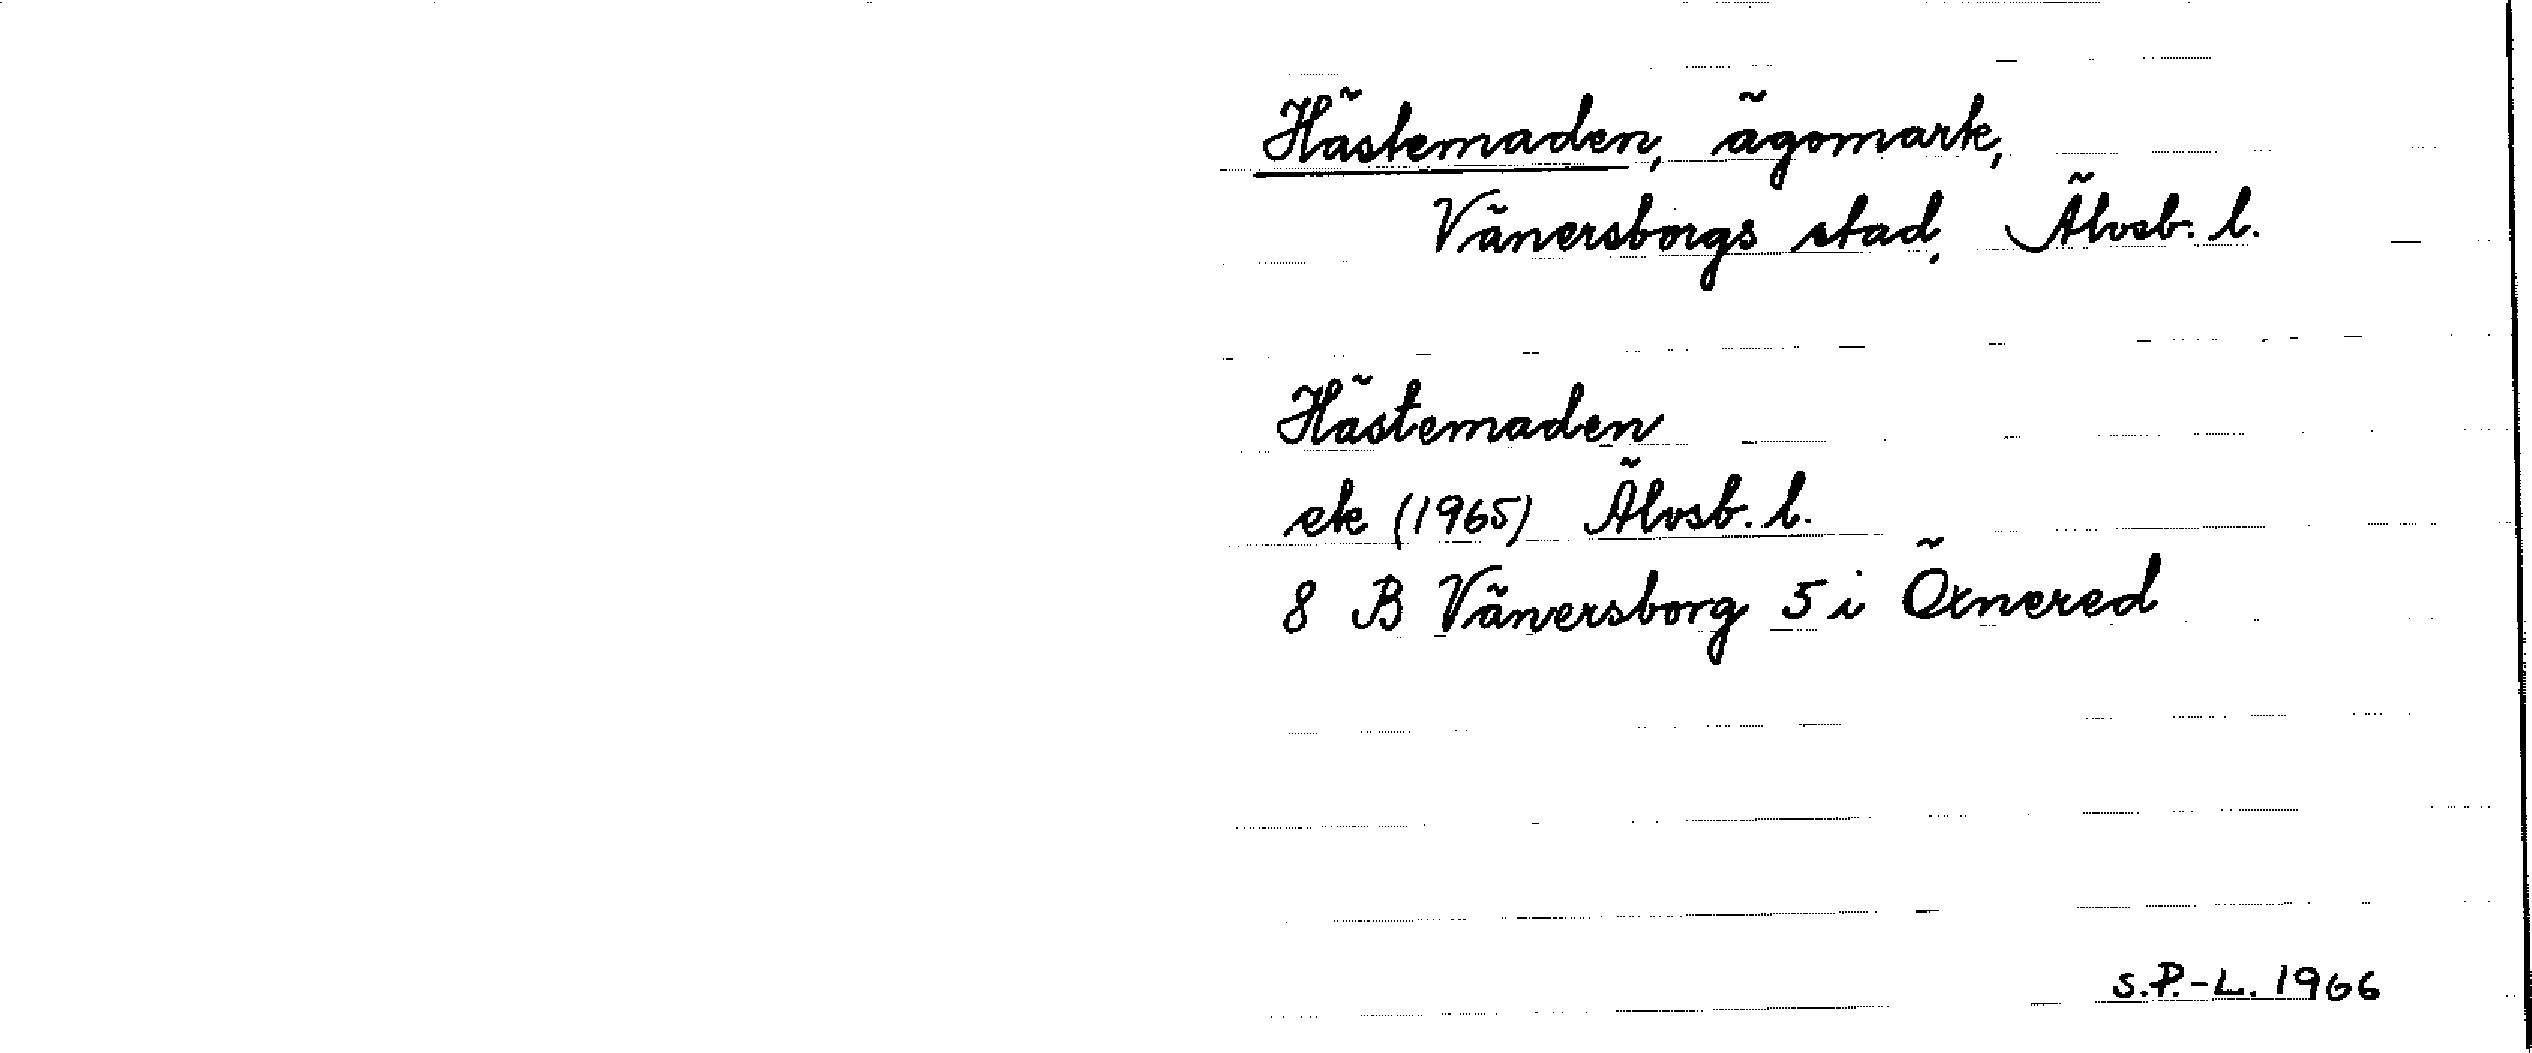 Hästemaden, ägomark,
Vänersborgs stad, Älvsb. l.
Hästemaden
ek (1965) Älvsb. l.
8 B Vänersborg 5 i Öxnered
S.P.-L. 1966